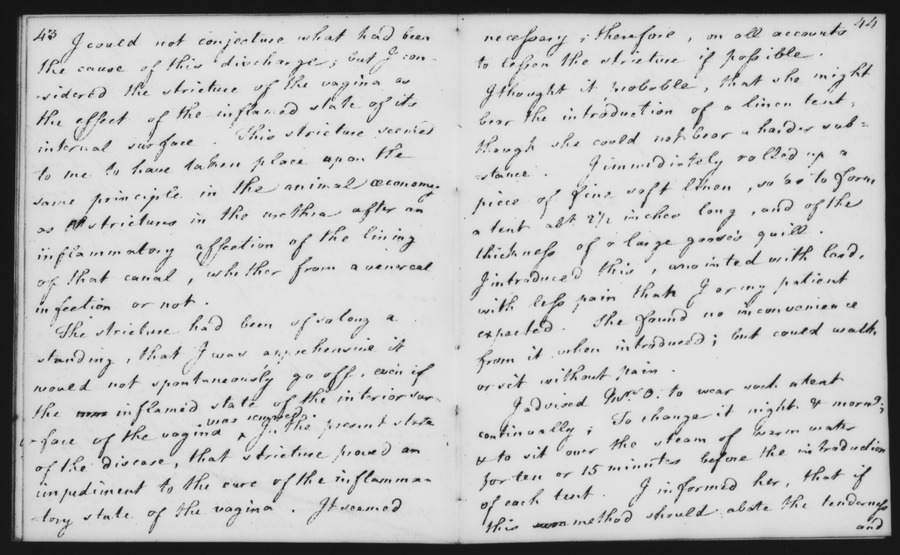 43
I could not conjecture what had been
the cause of this discharge; but I con-
-sidered the stricture of the vagina as
the effect of the inflamed state of its
internal surface. This stricture seemed
to me to have taken place upon the
same principle in the animal œconomy
as strictures in the urethra after an
inflammatory affection of the lining
of that canal, whether from a venereal
infection or not.
The stricture had been of so long a
standing, that I was apprehensive it
would not spontaneously go off, even if
the inflamed state of the interior sur-
was removed.
-face of the vagina ^ In the present state
of the disease, that stricture proved an
impediment to the cure of the inflamma-
-tory state of the vagina. It seemed
44
necessary; therefore, on all accounts
to lessen the stricture if possible.
I thought it probable, that she might
bear the introduction of a linen tent,
though she could not bear a harder sub=
-stance. I immediately rolled up a
piece of fine soft linen, so as to form
a tent abt 2½ inches long, and of the
thickness of a large goose's quill.
I introduced this, anointed with lard,
with less pain than I or my patient
expected. She found no inconvenience
from it when introduced; but could walk
or sit without pain.
I advised Mrs O. to wear such a tent
continually; To change it night & morng;
& to sit over the steam of warm water
for ten or 15 minutes before the introduction
of each tent. I informed her, that if
this method should abate the tenderness
and